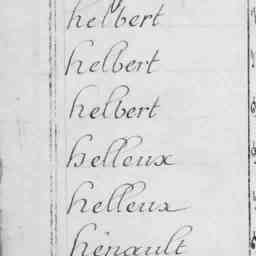 helbert
helbert
helbert
helleux
helleux
hénault